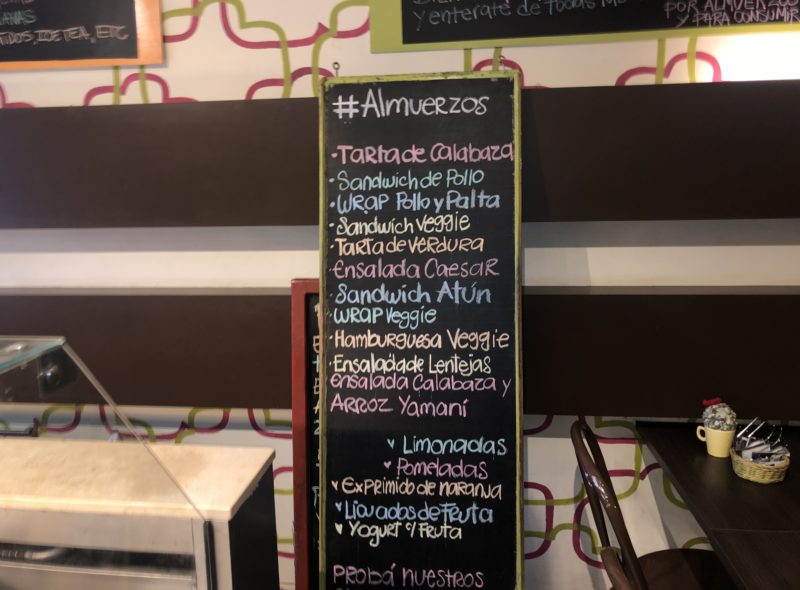 DOS, ICE TEA, ETC
y enterate de todas
POR ALMUERZOS
Y PARA CONSUMIR
#Almuerzos
·Tarta de Calabaza
·Sandwich de Pollo
·WRAP Pollo y Palta
·Sandwich Veggie
·Tarta de Verdura
·Ensalada Caesar
·Sandwich Atún
·WRAP Veggie
·Hamburguesa Veggie
·Ensaladade Lentejas
ensalada Calabaza y
ARROZ Yamaní
♥ Limonadas
♥ Pomeladas
♥ Exprimido de naranja
♥ Licuados de Fruta
♥ Yogurt c/ Fruta
PROBÁ nuestros